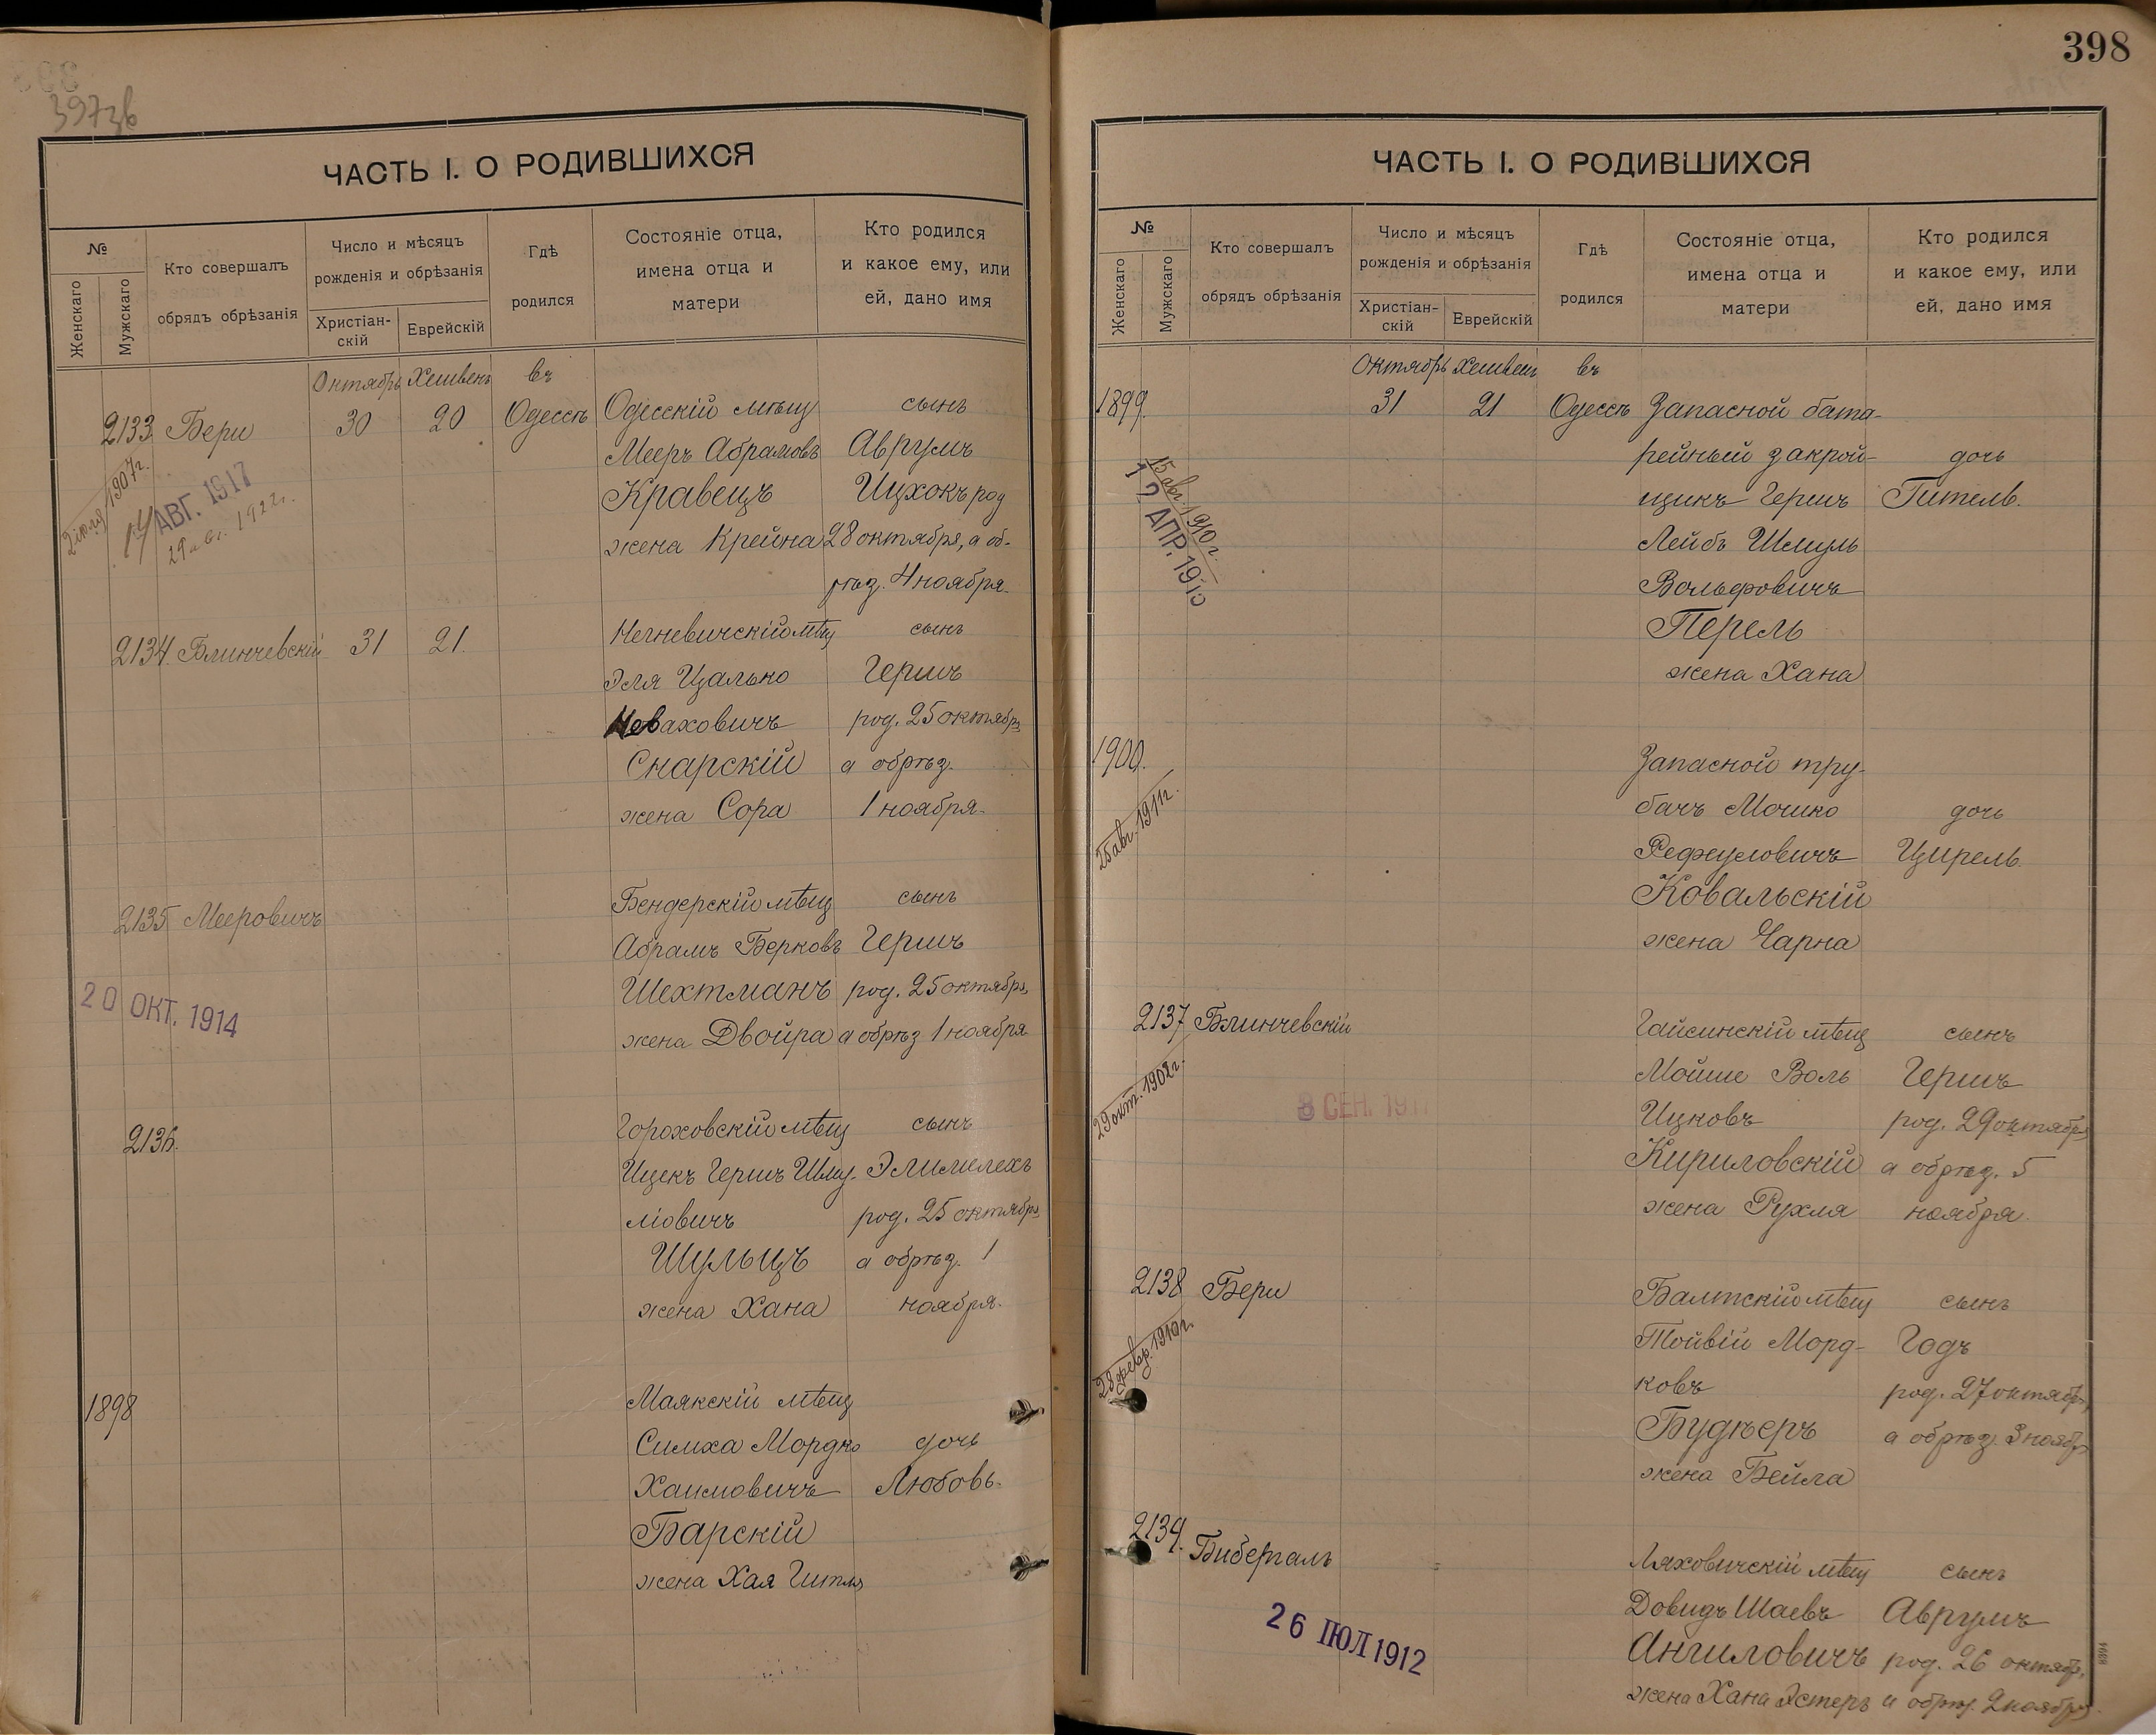 397зв
ЧАСТЬ I. О РОДИВШИХСЯ
№
Женскаго
Мужскаго
Кто совершалъ
обрядъ обрѣзанія
Число и мѣсяцъ
рожденія и обрѣзанія
Христіан-
скій
Еврейскій
Гдѣ
родился
Состояніе отца,
имена отца и
матери
Кто родился
и какое ему, или
ей, дано имя
Октябрь Хешвень въ
2133 Бери 30 20 Одессѣ Одесскій мѣщ сынъ
Мееръ Абрамовъ Аврумъ
Кравецъ Ицхокъ род
жена Крейна 28 октября, а об-
рѣз. 4 ноября.
2 іюля 1907 г.
14 АВГ. 1917
29 авг. 1922 г.
2134 Блинчевскій 31 21. Негневичскій мѣщ сынъ
Эля Цалько Гершъ
Новаховичъ род. 25 октябр
Снарскій а обрѣз.
жена Сора 1 ноября.
2135 Мееровичъ Бендерскій мѣщ сынъ
Абрамъ Берковъ Гершъ
Шехтманъ род. 25 октября,
жена Двойра а обрѣз 1 ноября
20 ОКТ. 1914
2136. Гороховскій мѣщ сынъ
Ицекъ Гершъ Шму- Элимелехъ
ліовичъ род. 25 октябр
Шульцъ а обрѣз. 1
жена Хана ноября.
1898 Маякскій мѣщ
Симха Мордко дочь
Хаимовичъ Любовь.
Барскій
жена Хая Гитля
398
ЧАСТЬ I. О РОДИВШИХСЯ
№
Женскаго
Мужскаго
Кто совершалъ
обрядъ обрѣзанія
Число и мѣсяцъ
рожденія и обрѣзанія
Христіан-
скій
Еврейскій
Гдѣ
родился
Состояніе отца,
имена отца и
матери
Кто родился
и какое ему, или
ей, дано имя
Октябрь Хешвень въ
1899. 31 21 Одессѣ Запасной бата-
рейный закрой- дочь
щикъ Гершъ Гитель.
Лейбъ Шмуль
Вольфовичъ
Перель
жена Хана
15 авг. 1910 г.
12 АПР. 191
1900. Запасной тру-
бачъ Мошко дочь
Рефуловичъ Цирель.
Ковальскій
жена Чарна
25 авг. 1911 г.
2137 Блинчевскій Гайсинскій мѣщ сынъ
Мойше Воль Гершъ
Ицковъ род. 29 октября
Кириловскій а обрѣз. 5
жена Рухля ноября.
29 окт. 1902 г.
8 СЕН. 191
2138 Бери Балтскій мѣщ сынъ
Тойвій Морд- Годъ
ковъ род. 27 октябр,
Буднеръ а обрѣз. 3 ноябр
жена Бейла
28 февр. 1910 г.
2139. Бибергаль Ляховичскій мѣщ сынъ
Довидъ Шаевъ Аврумъ
Ангиловичъ род. 26 октябр,
жена Хана Эстеръ а обрѣз. 2 ноября.
26 ІЮЛ 1912